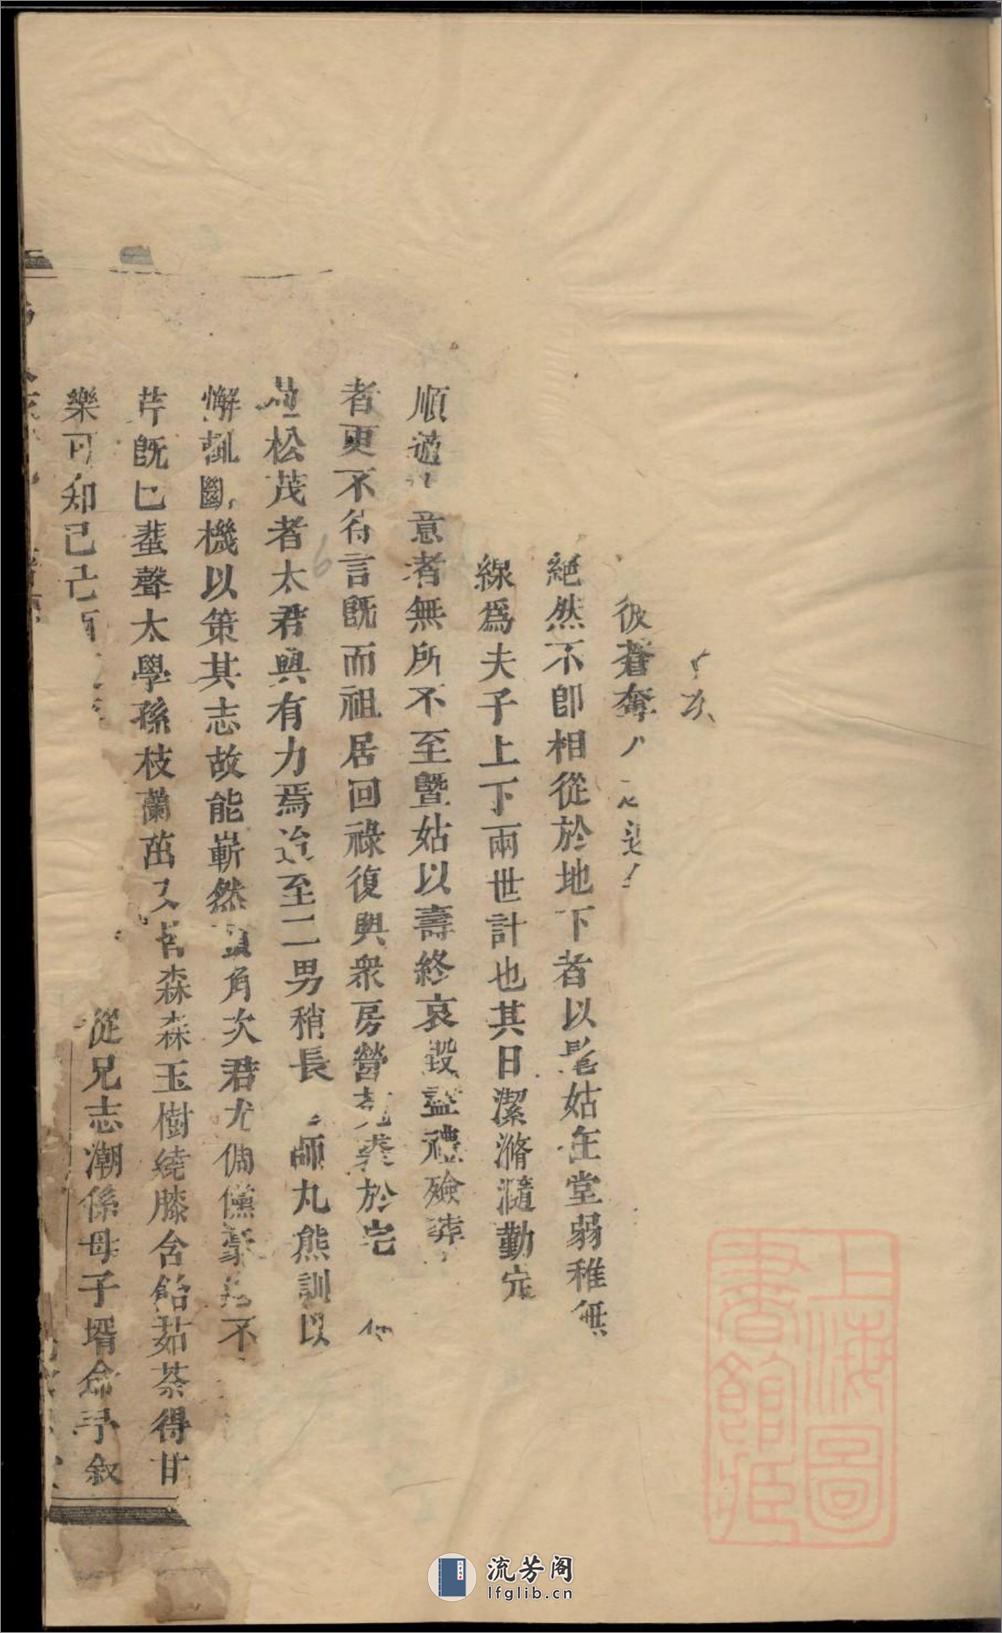 次
彼蒼奪
絕然不即相從於地下者以髦姑在堂弱稚無
線爲夫子上下兩世計也其日潔滫瀡勤
順適 意者無所不至曁姑以壽終哀毀盡禮殮葬
者更不待言既而祖居回祿復興衆房營 於宅
松茂者太君與有力焉迨至二男稍長 師丸熊訓以
懈 斷機以策其志故能嶄然頭角次君尤倜儻豪 不
芹既已蜚聲太學孫枝蘭茁又 森森玉樹繞膝含飴茹荼得甘
樂可知己亡 從兄志潮係母子壻命予叙
上海圖書館藏
流芳阁
lfglib.cn